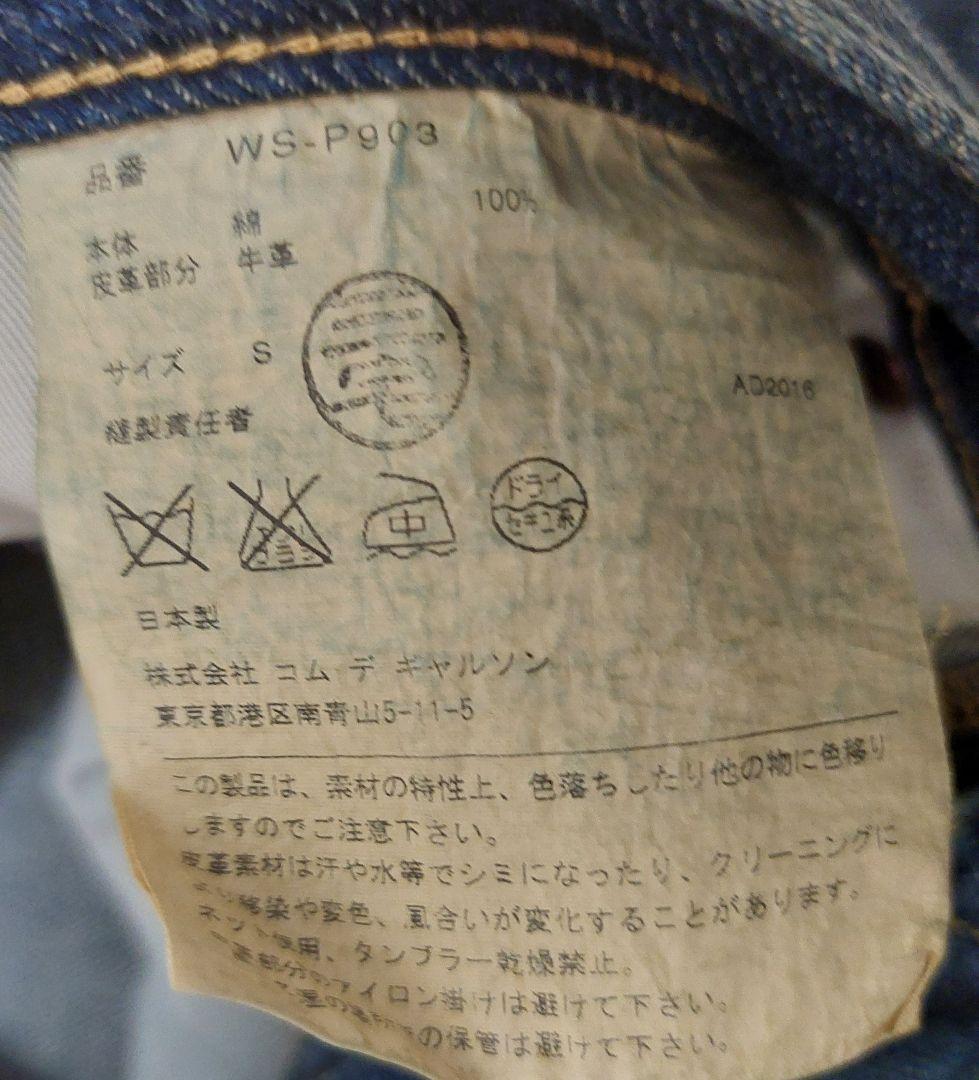 品番 WS-P903
本体 綿 100%
皮革部分 牛革
サイズ S
AD2016
縫製責任者
中
ドライ
セキユ系
日本製
株式会社 コム デ ギャルソン
東京都港区南青山5-11-5
この製品は、素材の特性上、色落ちしたり他の物に色移り
しますのでご注意下さい。
皮革素材は汗や水等でシミになったり、クリーニングに
より移染や変色、風合いが変化することがあります。
ネット使用、タンブラー乾燥禁止。
部分のアイロン掛けは避けて下さい。
の保管は避けて下さい。